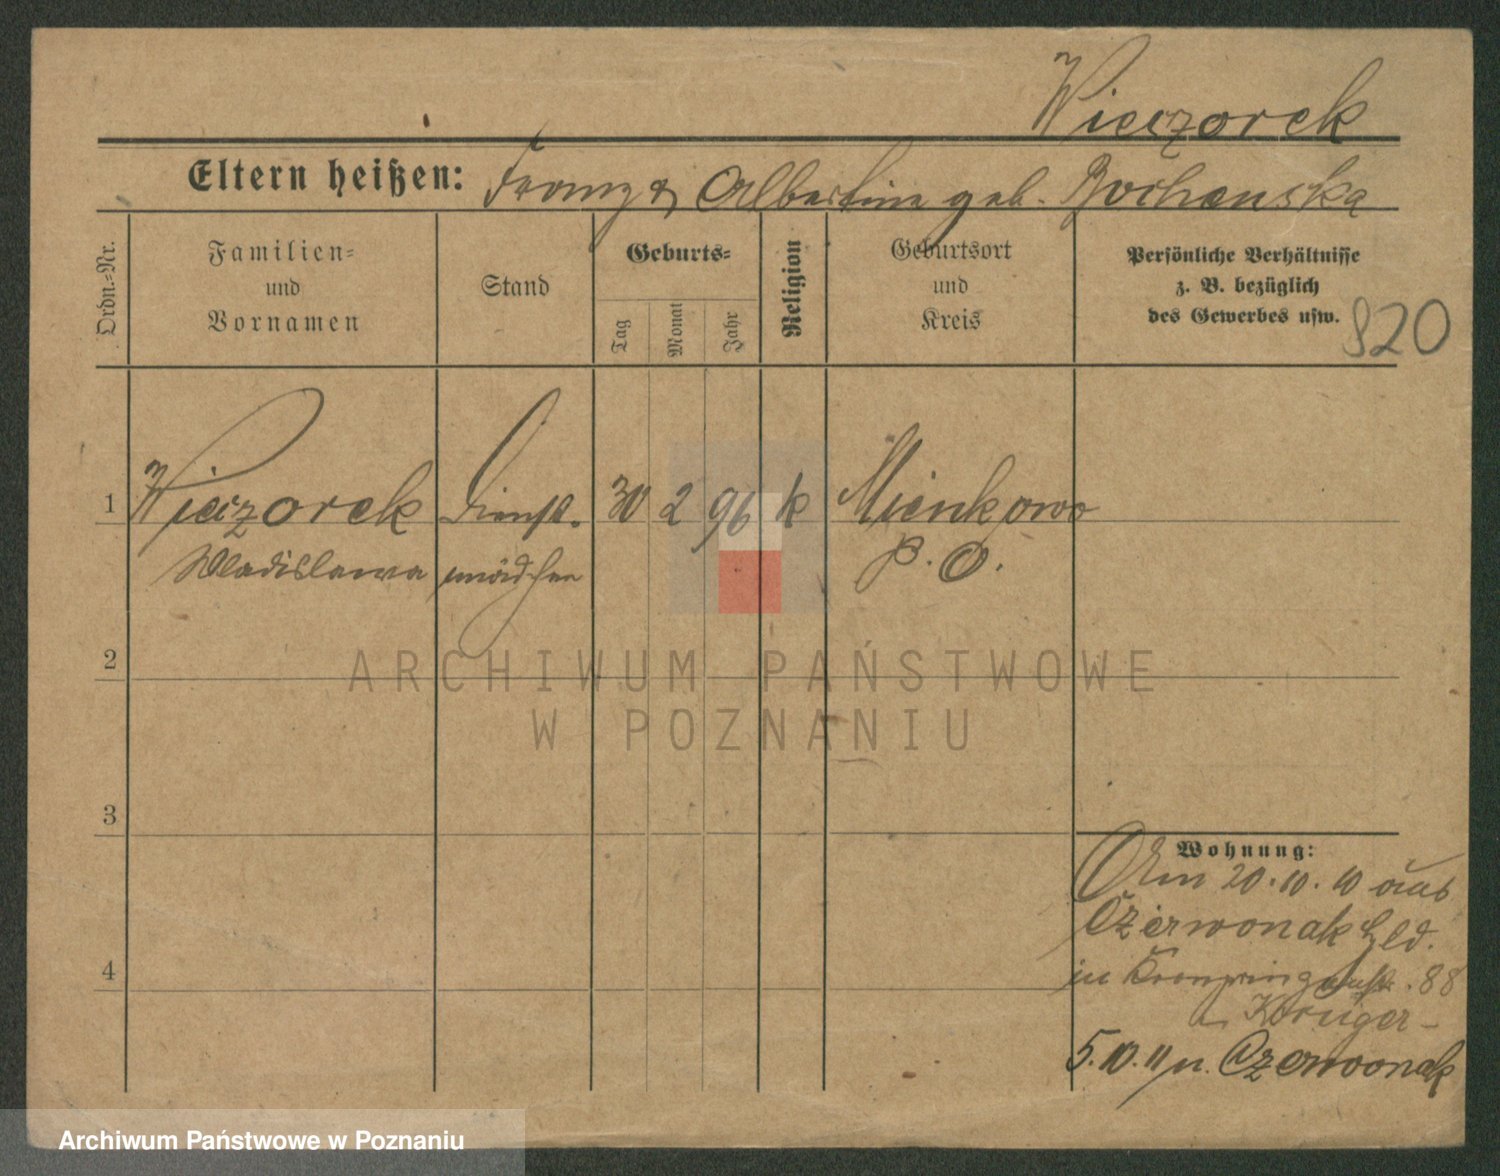 Wieczorek
Eltern heißen: Franz & Albertine geb. Bochenska
Ordn.-Nr.
Familien-
und
Vornamen
Stand
Geburts-
Tag
Monat
Jahr
Religion
Geburtsort
und
Kreis
Persönliche Verhältnisse
z. B. bezüglich
des Gewerbes usw.
820
1 Wieczorek Dienst- 30 2 96 k Mienkowo
Wladislawa mädchen P. O.
2
ARCHIWUM PAŃSTWOWE
W POZNANIU
3
Wohnung:
Am 20.10.10 aus
Czerwonak Hld.
in Kronprinzenstr. 88
b. Krüger-
5.10.11 n. Czerwonak
4
Archiwum Państwowe w Poznaniu